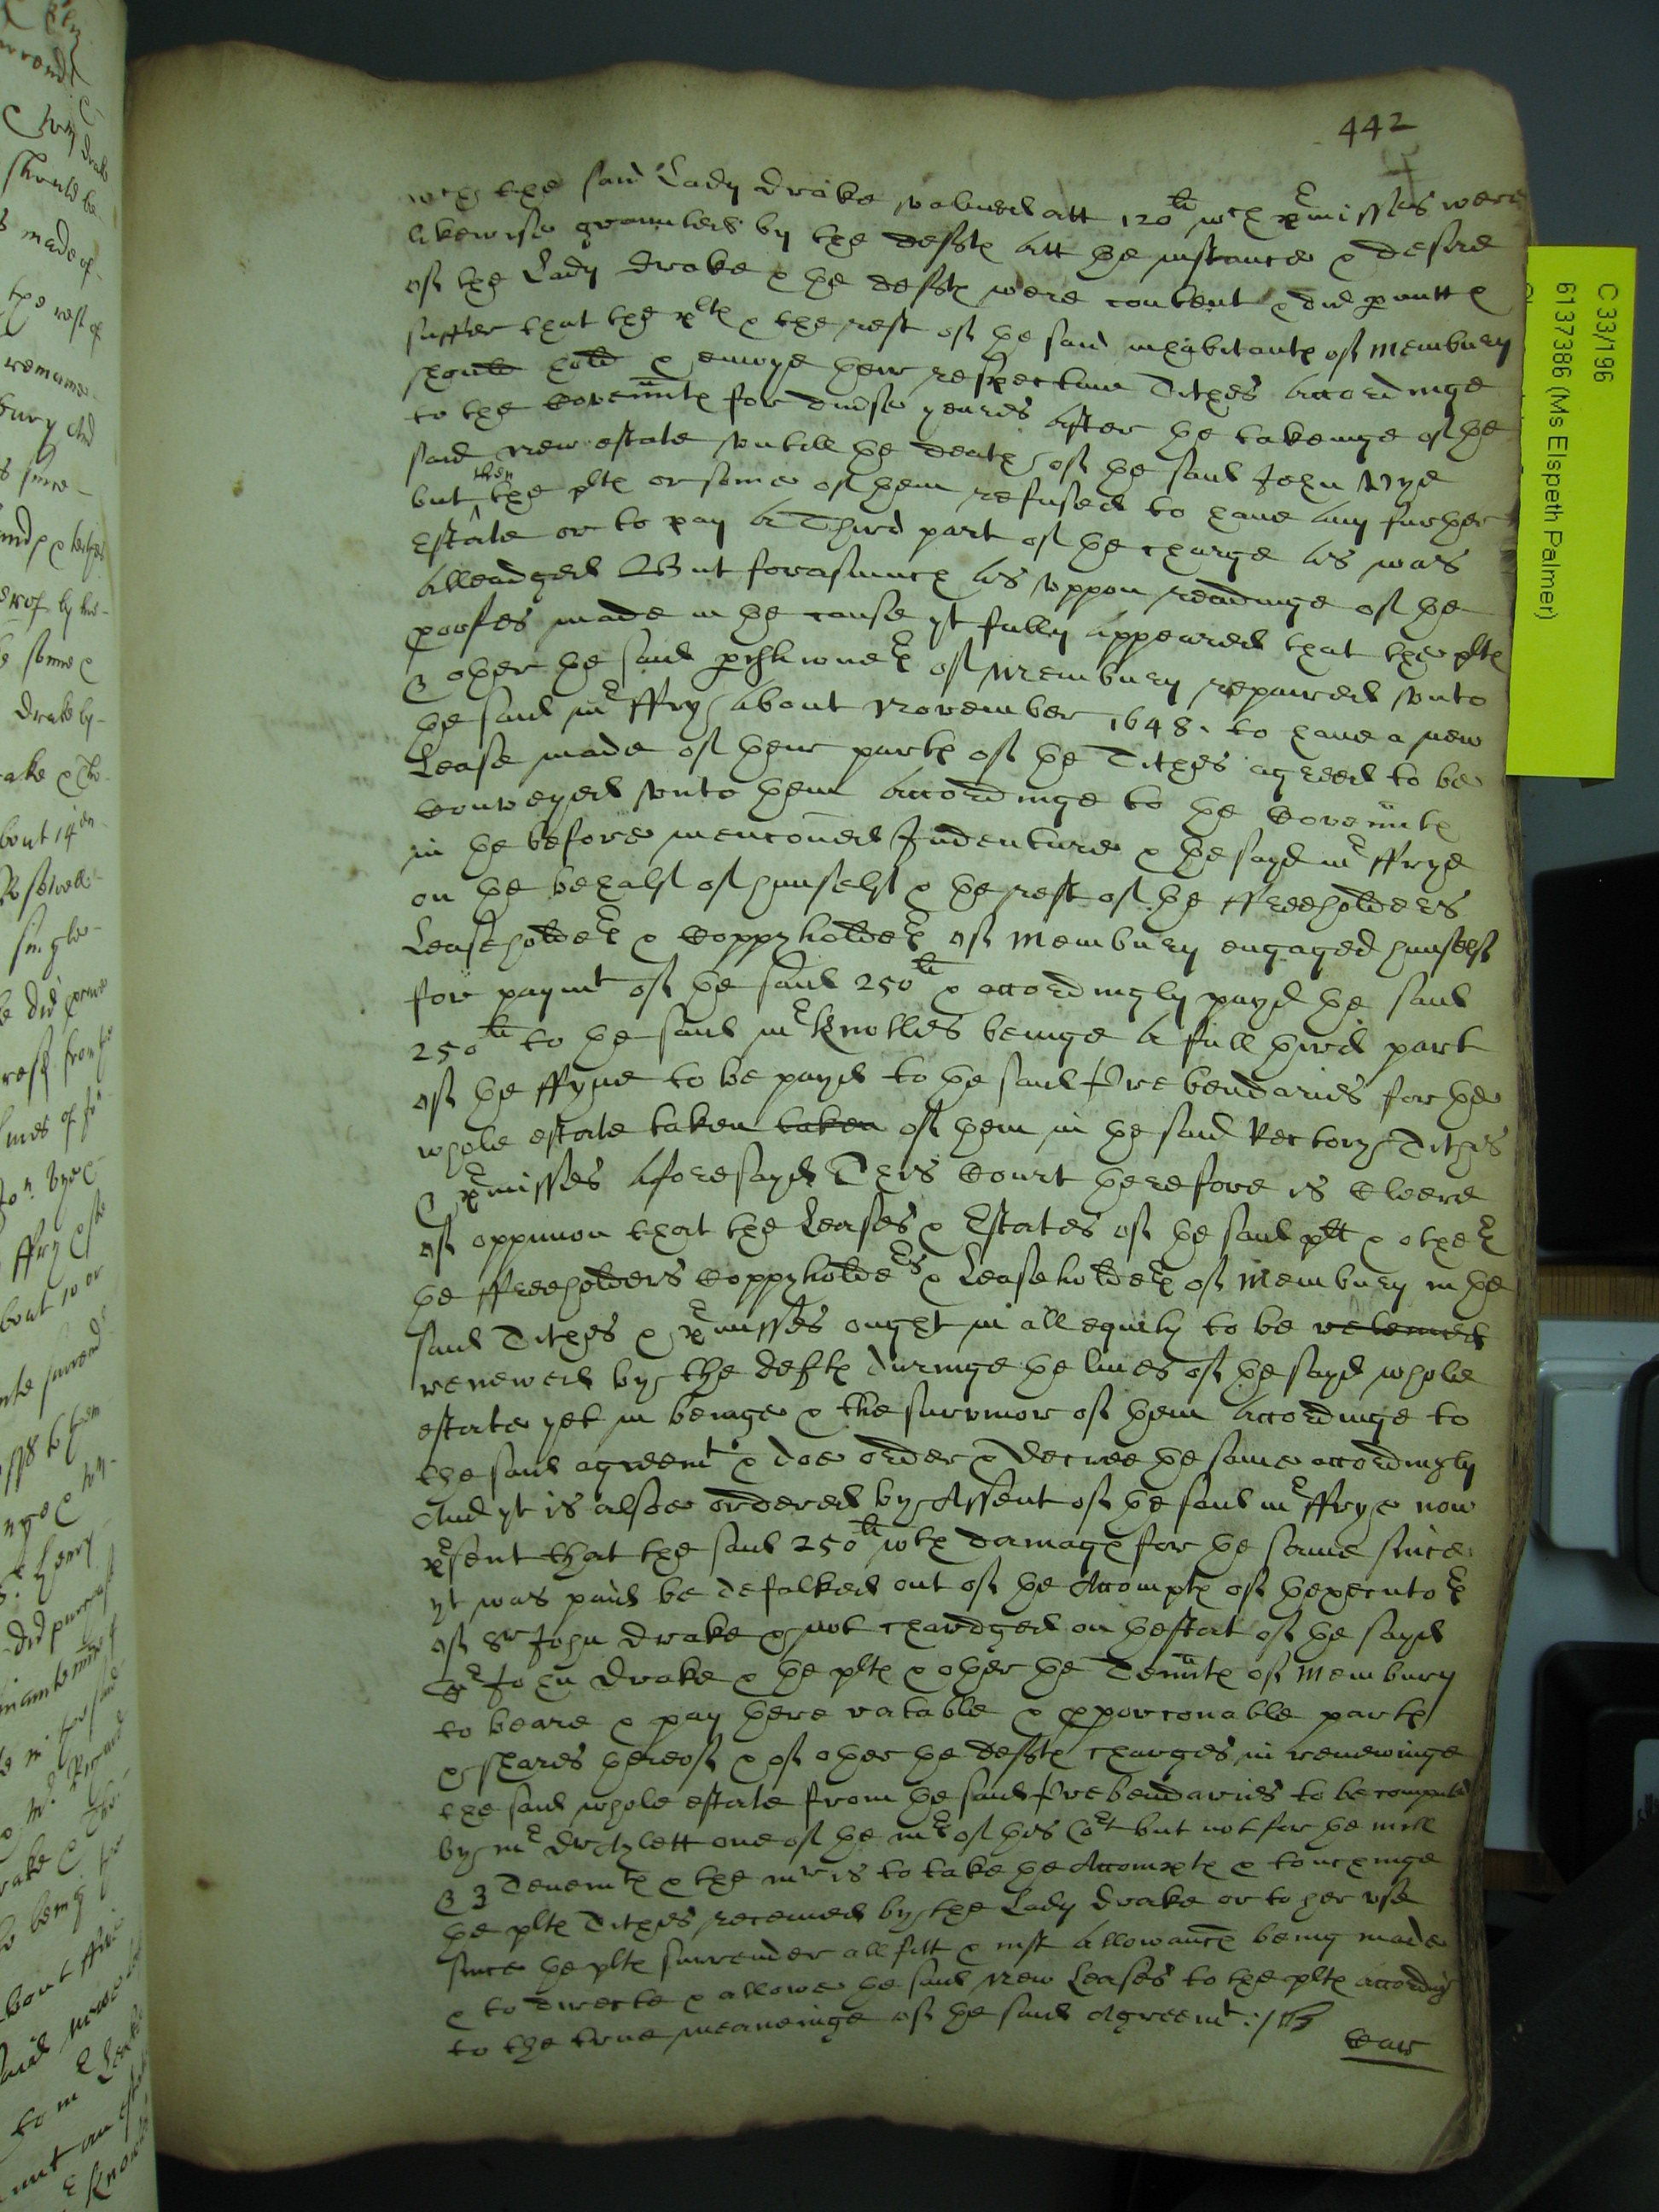 442
wch the said Lady Drake valued att 120li wch pmisses were
likewise graunted by the defts att the instance & desire
of the Lady Drake & the defts were content & did pmitt &
suffer that the plts & the rest of the said inhabitants of Membury
should hold & enioye their respective Tithes accordinge
to the Covennts for divse yeares after the takeinge of the
said new estate untill the death of the said John Frye
but then the plts or some of them refused to have any further
Estate or to pay a Third part of the charge as was
alleadged But forasmuch as uppon readinge of the
proofes made in the cause yt fully appeared that the plts
& other the said pishioners of Membury repaired unto
the said mr ffry about November 1648. to have a new
Lease made of their parts of the Tithes agreed to be
Conveyed unto them accordinge to the Covennts
in the before menconed Indenture & the sayd mr ffrye
on the behalf of himself & the rest of the ffreeholders
Leaseholders & Coppyholders of Membury engaged himself
for paymt of the said 250li & accordingly payd the said
250li to the said mr Knolles beinge a full third part
of the ffyne to be payd to the said Prebendaries for the
whole estate taken taken of them in the said Rectory Tithes
& pmisses aforesayd This Court therefore is Cleere
of oppinion that the Leases & Estates of the said plt & other
the ffreeholders Coppyholders & Leaseholders of Membury in the
said Tithes & pmisses ought in all equity to be
renewed by the defts duringe the lives of the sayd whole
estate yet in beinge & the survivor of them accordinge to
the said agreemt & doe order & decree the same accordingly
And yt is alsoe ordered by Assent of the said mr ffrye now
psent that the said 250li wth damages for the same since
yt was paid be defalked out of the Accompts of thexecutors
of Sr John Drake & not chardged on thestat of the sayd
Sr John Drake & the plts & other the Tennts of Membury
to beare & pay there ratable & pporconable parts
& shares thereof & of other the defts charges in renewinge
the said whole estate from the said Prebendaries to be computed
by mr Dr Aylett one of the mrs of this Cort but not for the mill
& 3 Tenemts & the mr is to take the Accompts & touchinge
the plts Tithes received by the Lady Drake or to her use
since the plts surrender all fitt & iust allowances being made
& to directe & allowe the said New Leases to the plts according
to the true meaneinge of the said Agreemt
C 33/196
6137386 (Ms Elspeth Palmer)